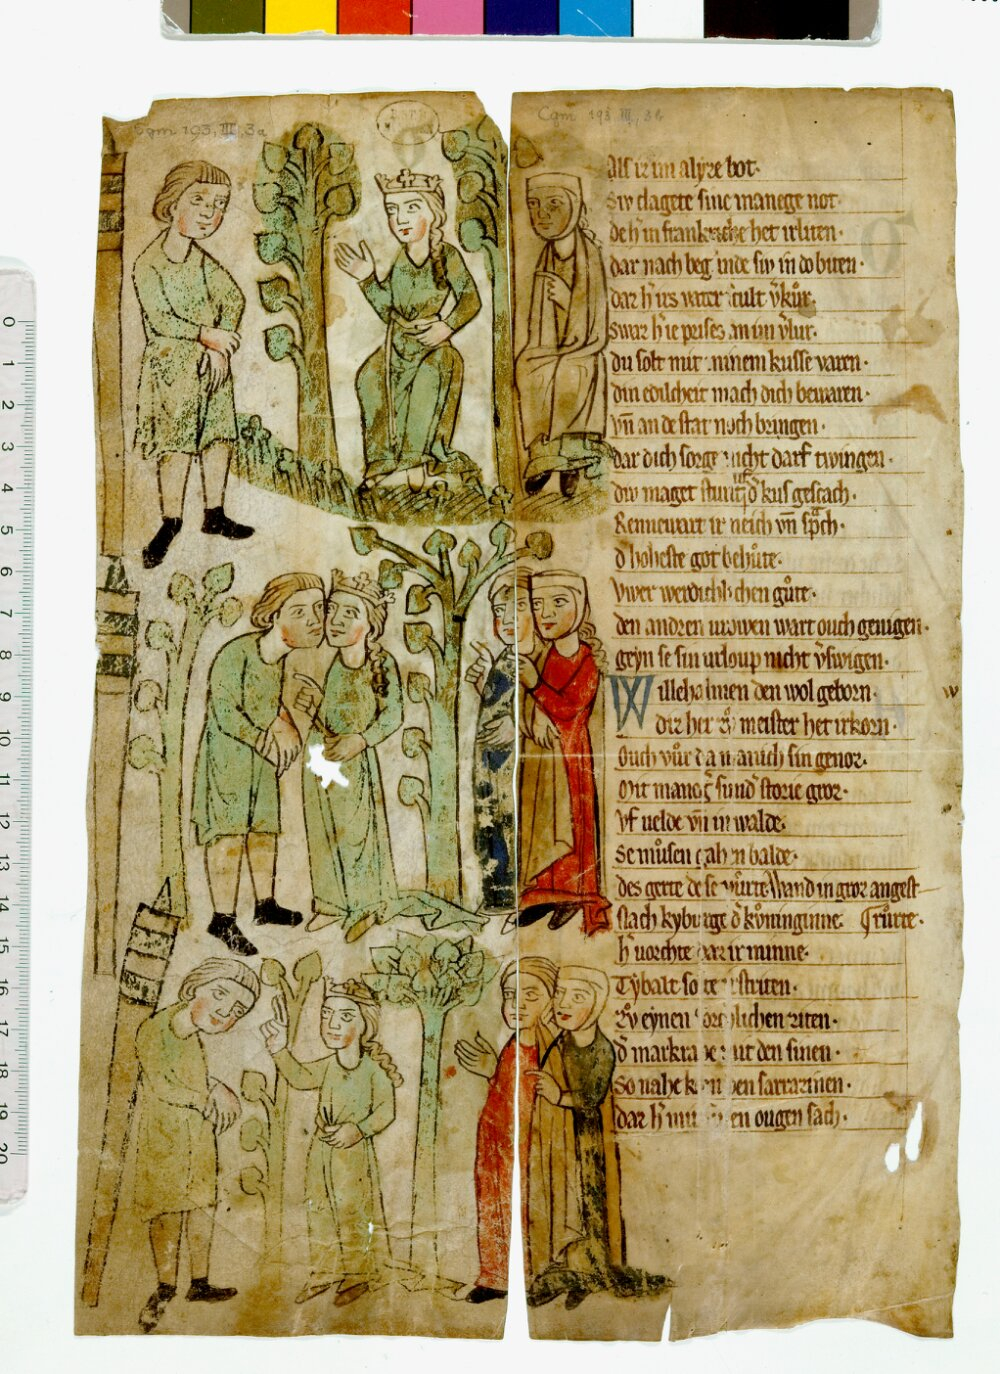 Cgm 193, III, 3a
Cgm 193 III, 3b
Als ir im alyze bot·
Siv clagete sine manege not·
de h̄ in frankriche het irliten·
dar nach beg inde siv in do biten·
dar h̄ irs vater
Swar h̄ ie prises an im
du solt mit minem kusse varen·
din edilcheit mach dich bewaren·
vn̄ an de stat noch bringen·
dar dich sorge nicht darf twingen·
div maget stunt uf d̄ kus gescach·
Rennewart ir neich vn̄ sp̄ch·
d̄ hoheste got behůte·
vwer werdichlichen gůte·
den andren vrowen wart ouch genigen·
gein se sin urloup nicht v̄swigen·
Willehalmen den wol geborn·
Dir her zů meister het irkorn·
Ouch vůr da manich sin genoz·
Mit maneḡ sund̄ storie groz·
vf velde vn̄ in walde·
Se můsen gahen balde·
des gerte de se vůrte Wand in groz angest
stach kyburge d̄ kůninginne· růrte·
h̄ vorchte daz ir minne·
Tybalt so
Zů eynen ziten·
d̄ markra mit den sinen·
So nahe ken den sarrazinen·
dar h̄ mit den ougen sach·
w
0
1
2
3
4
5
6
7
8
9
10
11
12
13
14
15
16
17
18
19
20